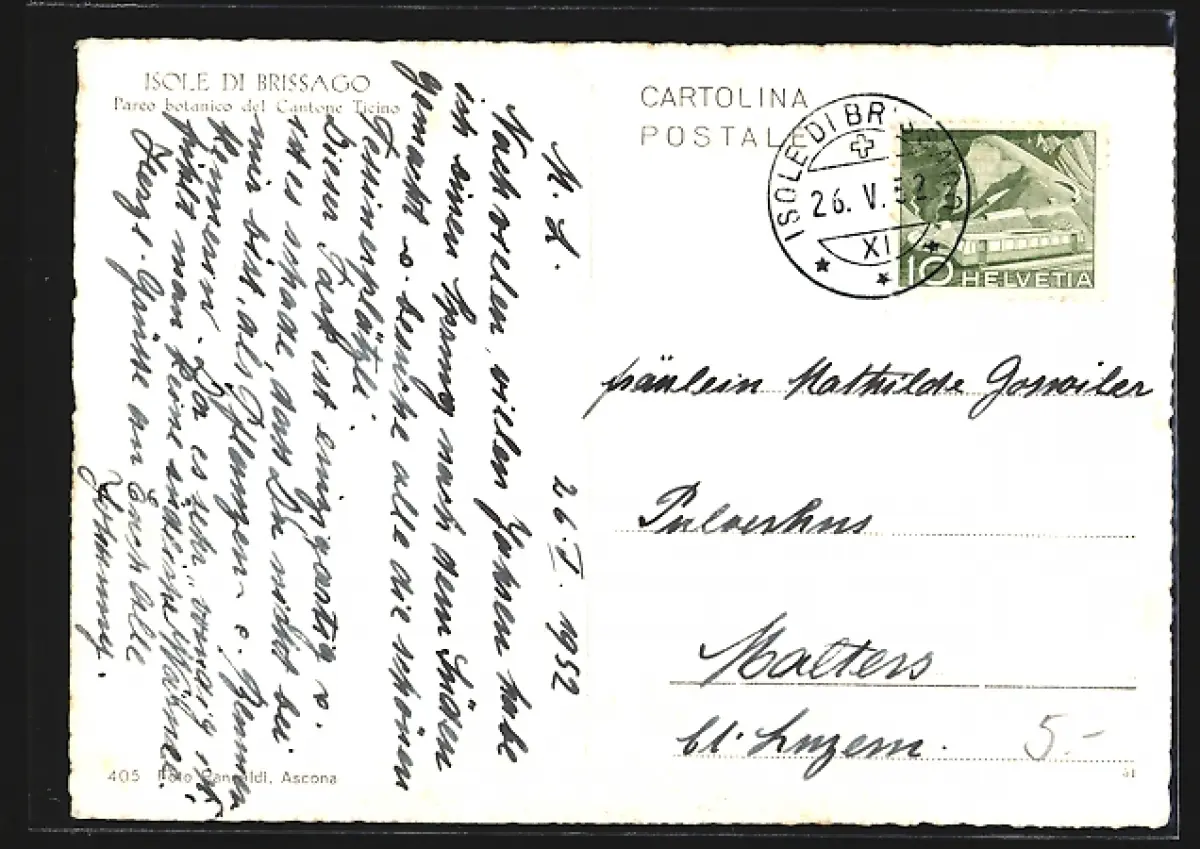 ISOLE DI BRISSAGO
Parco botanico del Cantone Ticino
CARTOLINA
POSTALE
ISOLE DI BRISSAGO
26. V. 52
XI
10 HELVETIA
M. L. 26. V. 1952
Nach vielen, vielen Jahren habe
ich einen Sprung nach dem Süden
gemacht u. besuche alle die schönen
Tessinerplätzli.
Dieser Park ist einzigartig u.
ist es schade, dass Du nicht bei
mir bist, als Pflanzen- u. Blumen
Kennerin. Da es sehr
fühlt man keine Wärme.
Herzl. Grüsse an Euch alle
Fräulein Mathilde Gosswiler
Pulverhus
Malters
bl. Luzern.
5.-
405 Foto Pancaldi, Ascona
51